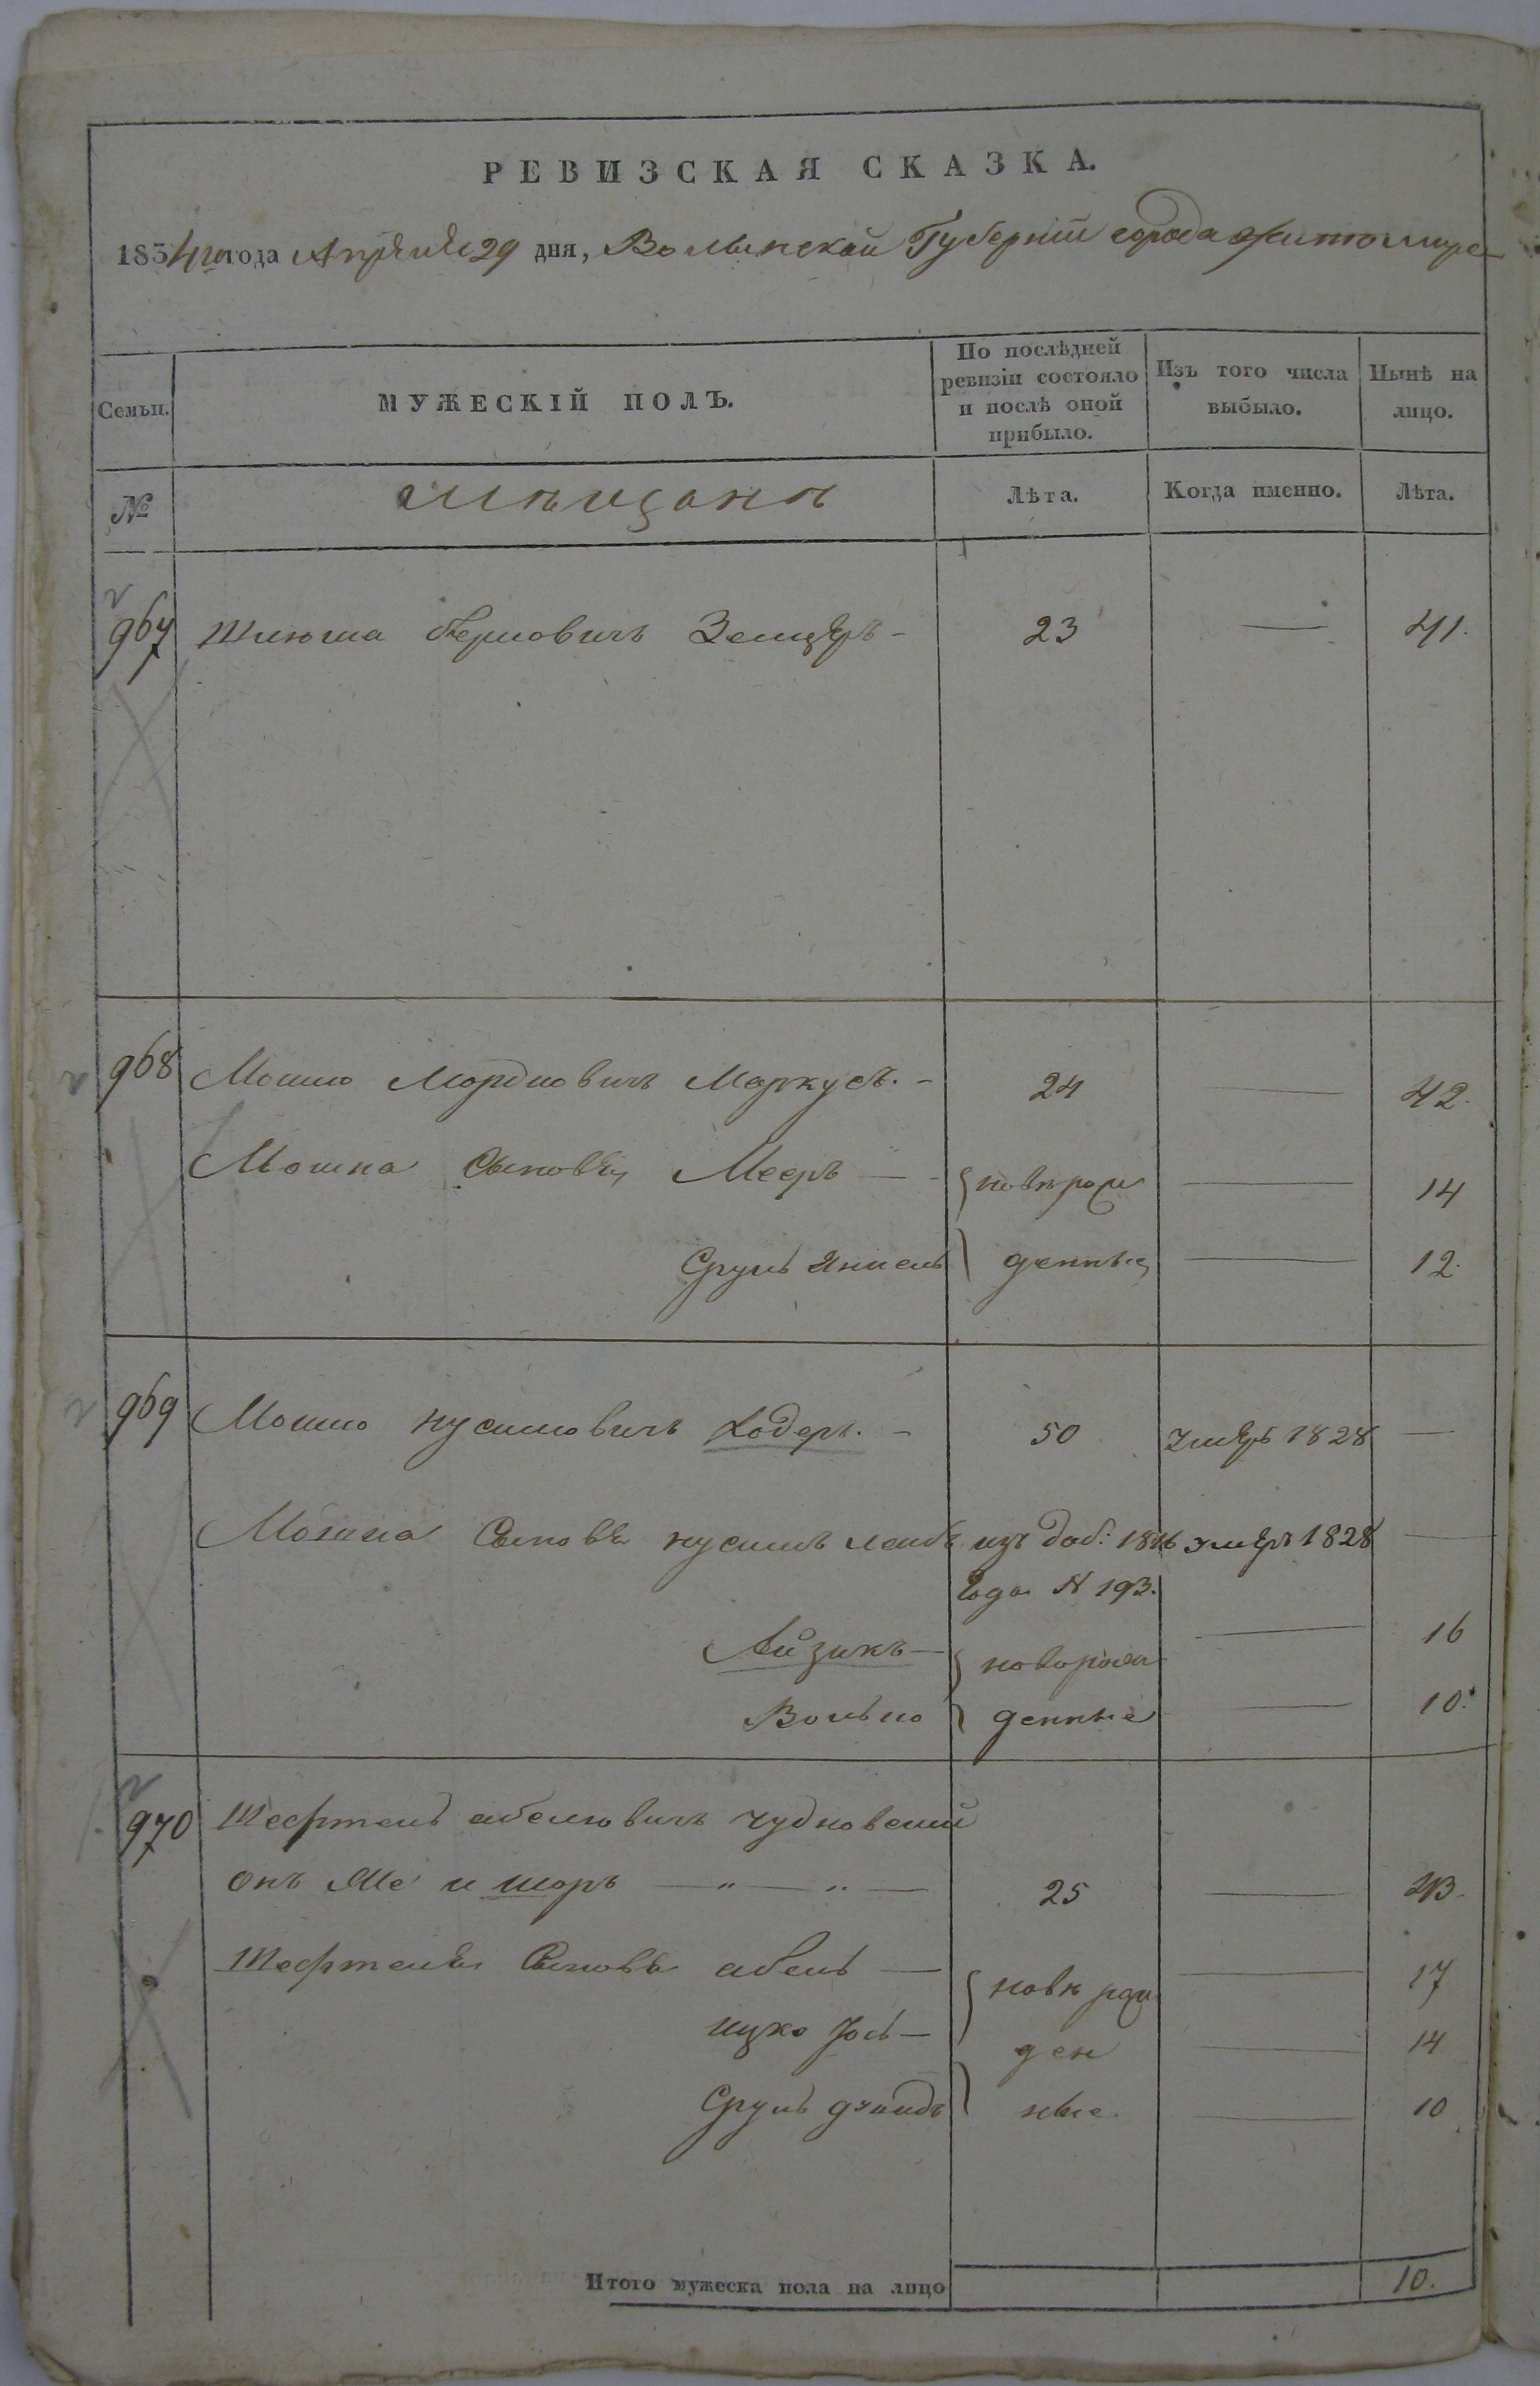 РЕВИЗСКАЯ СКАЗКА.
1834го года Апрѣля 29 дня, Волынской Губерніи города Житомира
Семьи.
МУЖЕСКІЙ ПОЛЪ.
По послѣдней ревизіи состояло и послѣ оной прибыло.
Изъ того числа выбыло.
Нынѣ на лицо.
№
мѣщанъ
Лѣта.
Когда именно.
Лѣта.
967 Шлюма Берковичъ 23 — 41.
968 Мошко Мордковичъ Маркусъ. - 24 — 42.
Мошка Сыновья Мееръ — новорож — 14
Сруль Янкель денные — 12.
969 Мошко Нусимовичъ Ходеръ. - 50 умеръ 1828 —
Мошка Сыновья Нусимъ Лейбъ изъ доб: 1816 умеръ 1828 —
года N 193.
Айзикъ — новорож — 16
Волько денные — 10.
970 Шефтель Абелювичъ Чудновскій
онъ же и Шоръ — " — " — 25 — 43.
Шефтеля Сыновья Абель — новорож — 17
Ицко Іось — ден — 14
Сруль Дувидъ ные — 10
Итого мужеска пола на лицо 10.